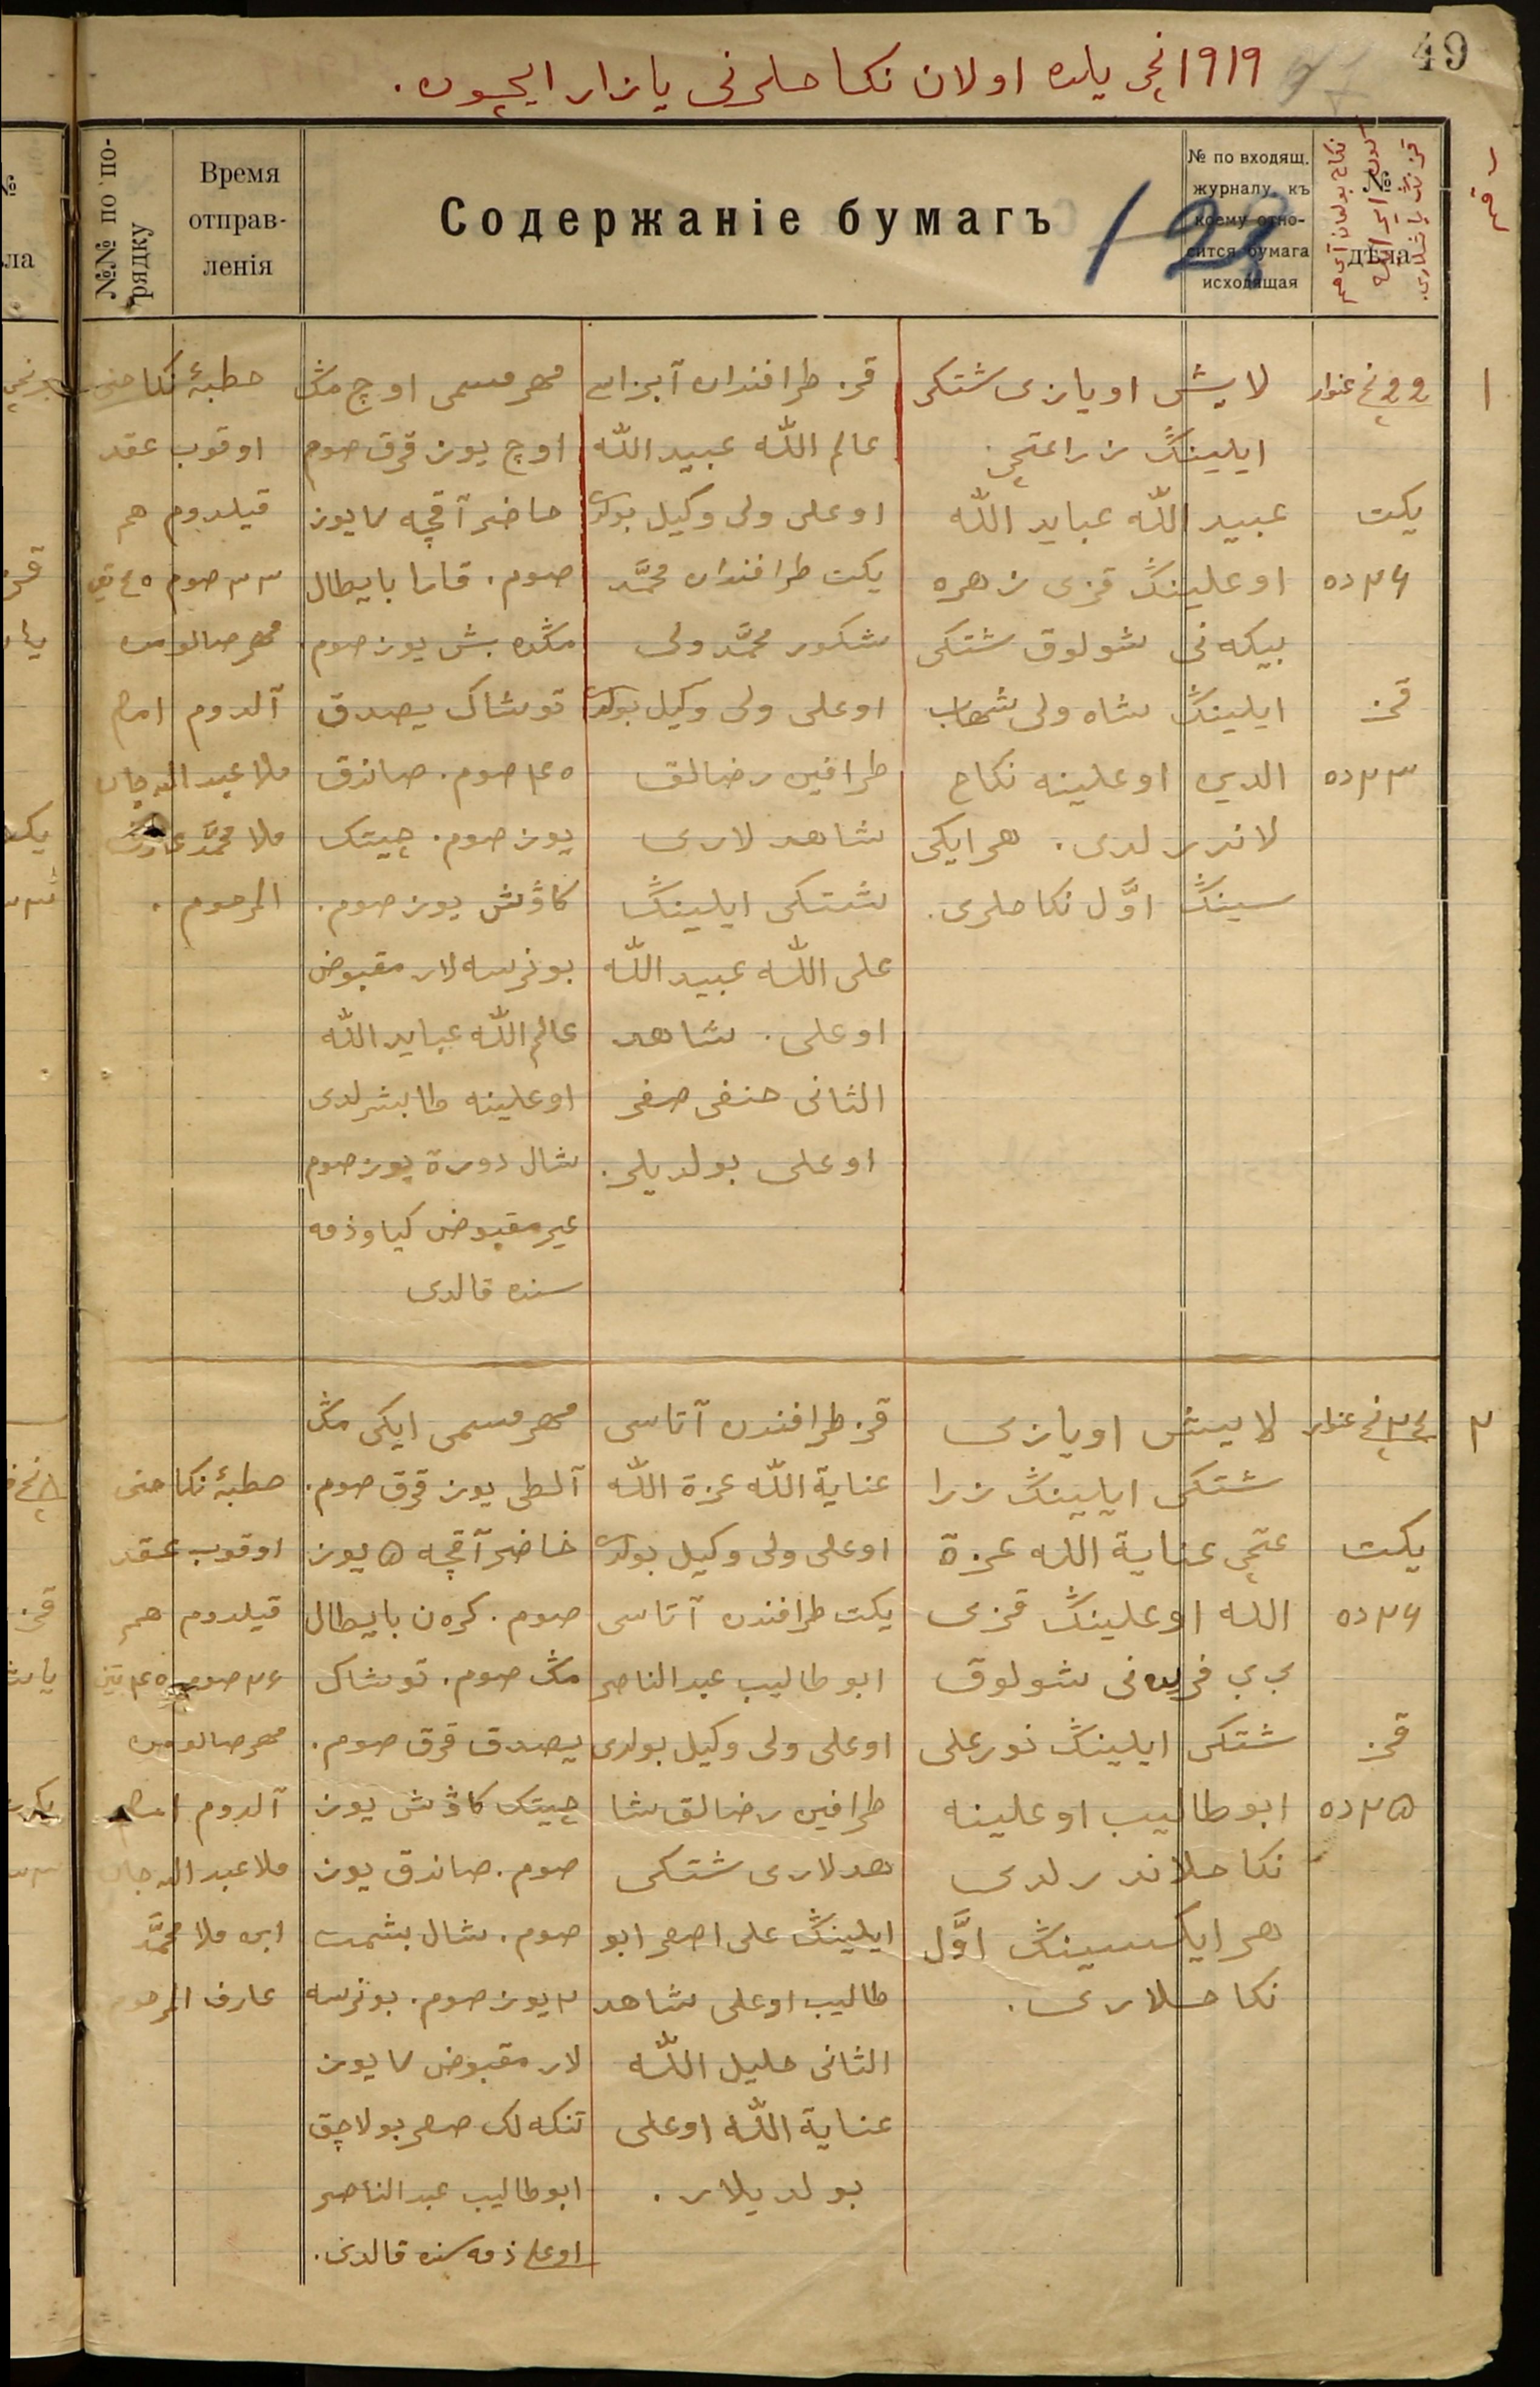 49
١٩١٩نچی یلده اولان نکاحلرنی یازار ایچون.
№№ по по-
рядку
Время
отправ-
ленія
Содержаніе бумагъ
№ по входящ.
журналу, къ
коему отно-
сится бумага
исходящая
№
дѣла
رقم
١
غنوار
یکت
٢٦ ده
قز
٢٣ ده
لایش اویازی شتکی
ایلینڭ زراعتچی
عبید الله عباید الله
اوغلینڭ قزی زهره
بیکه نی شولوق شتکی
ایلینڭ شاه ولی شهاب
الدین اوغلینه نکاح
لاندرلدی. هر ایکی
سینڭ اوّل نکاحلری.
قز طرافندان آبزاسی
عالم الله عبید الله
اوغلی ولی وکیل بولدی
یکت طرافندان محمّد
شکور محمّد ولی
اوغلی ولی وکیل بولدی
طرافین رضالق
شاهد لاری
شتکی ایلینڭ
علی الله عبید الله
اوغلی. شاهد
الثانی حنفی صفر
اوغلی بولدیلر.
مهر مسمی اوچ مڭ
اوچ یوز قرق صوم
حاضر آقچه ٧ یوز
صوم. قارا بایطال
مڭده بش یوز صوم.
توشاك یصدق
٢٤٥ صوم. صاندق
یوز صوم. چیتك
كاوش یوز صوم.
بو نرسه لار مقبوض
عالم الله عباید الله
اوغلینه طابشرلدی
شال دورة یوز صوم
غیر مقبوض کیاو ذمه
سنده قالدی
خطبهٔ نکاحنی
اوقوب عقد
قیلدوم هم
٣٣ صوم ٤٥ تین
مهر صالومن
آلدوم امام
ملا عبد الله جان
ملا محمّد عارف
المرحوم.
٢
غنوار
یکت
٢٦ ده
قز
٢٥ ده
لایش اویازی
شتکی ایلینڭ زرا
عتچی عنایة الله عزة
الله اوغلینڭ قزی
بی بی فریده نی شولوق
شتکی ایلینڭ نورعلی
ابوطالیب اوغلینه
نکاحلاندرلدی
هر ایکسینڭ اوّل
نکاحلاری.
قز طرافندن آتاسی
عنایة الله عزة الله
اوغلی ولی وکیل بولدی
یکت طرافندن آتاسی
ابوطالیب عبد الناصر
اوغلی ولی وکیل بولدی
طرافین رضالق شا
هدلاری شتکی
ایلینڭ علی اصغر ابو
طالیب اوغلی شاهد
الثانی خلیل الله
عنایة الله اوغلی
بولدیلار.
مهر مسمی ایکی مڭ
آلطی یوز قرق صوم.
حاضر آقچه ٥ یوز
صوم. کرەن بایطال
مڭ صوم. توشاك
یصدق قرق صوم.
چیتك كاوش یوز
صوم. صاندق یوز
صوم. شال بشمت
٢ یوز صوم. بو نرسه
لار مقبوض ٧ یوز
تنکه لك صغر بولاچق
ابوطالیب عبد الناصر
اوغلی ذمه سنده قالدی.
خطبهٔ نکاحنی
اوقوب عقد
قیلدوم هم
٢٦ صوم ٤٠ تین
مهر صالومن
آلدوم امام
ملا عبد الله جان
ابن ملا محمّد
عارف المرحوم